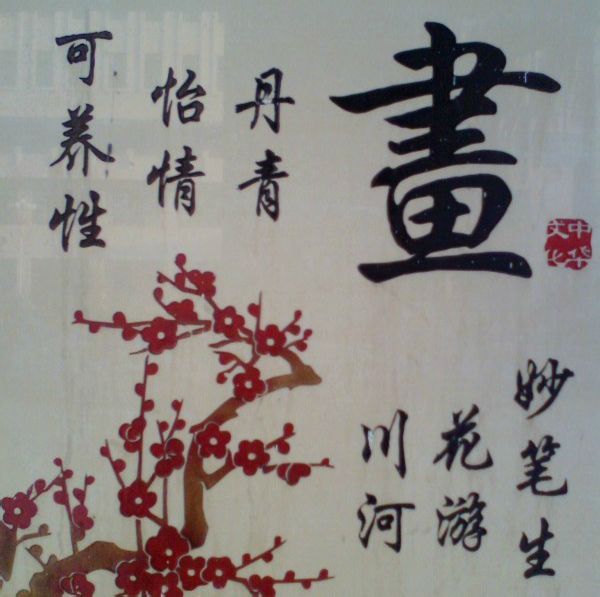 畫
中华
文化
丹青
怡情
可养性
妙笔生
花游
川河